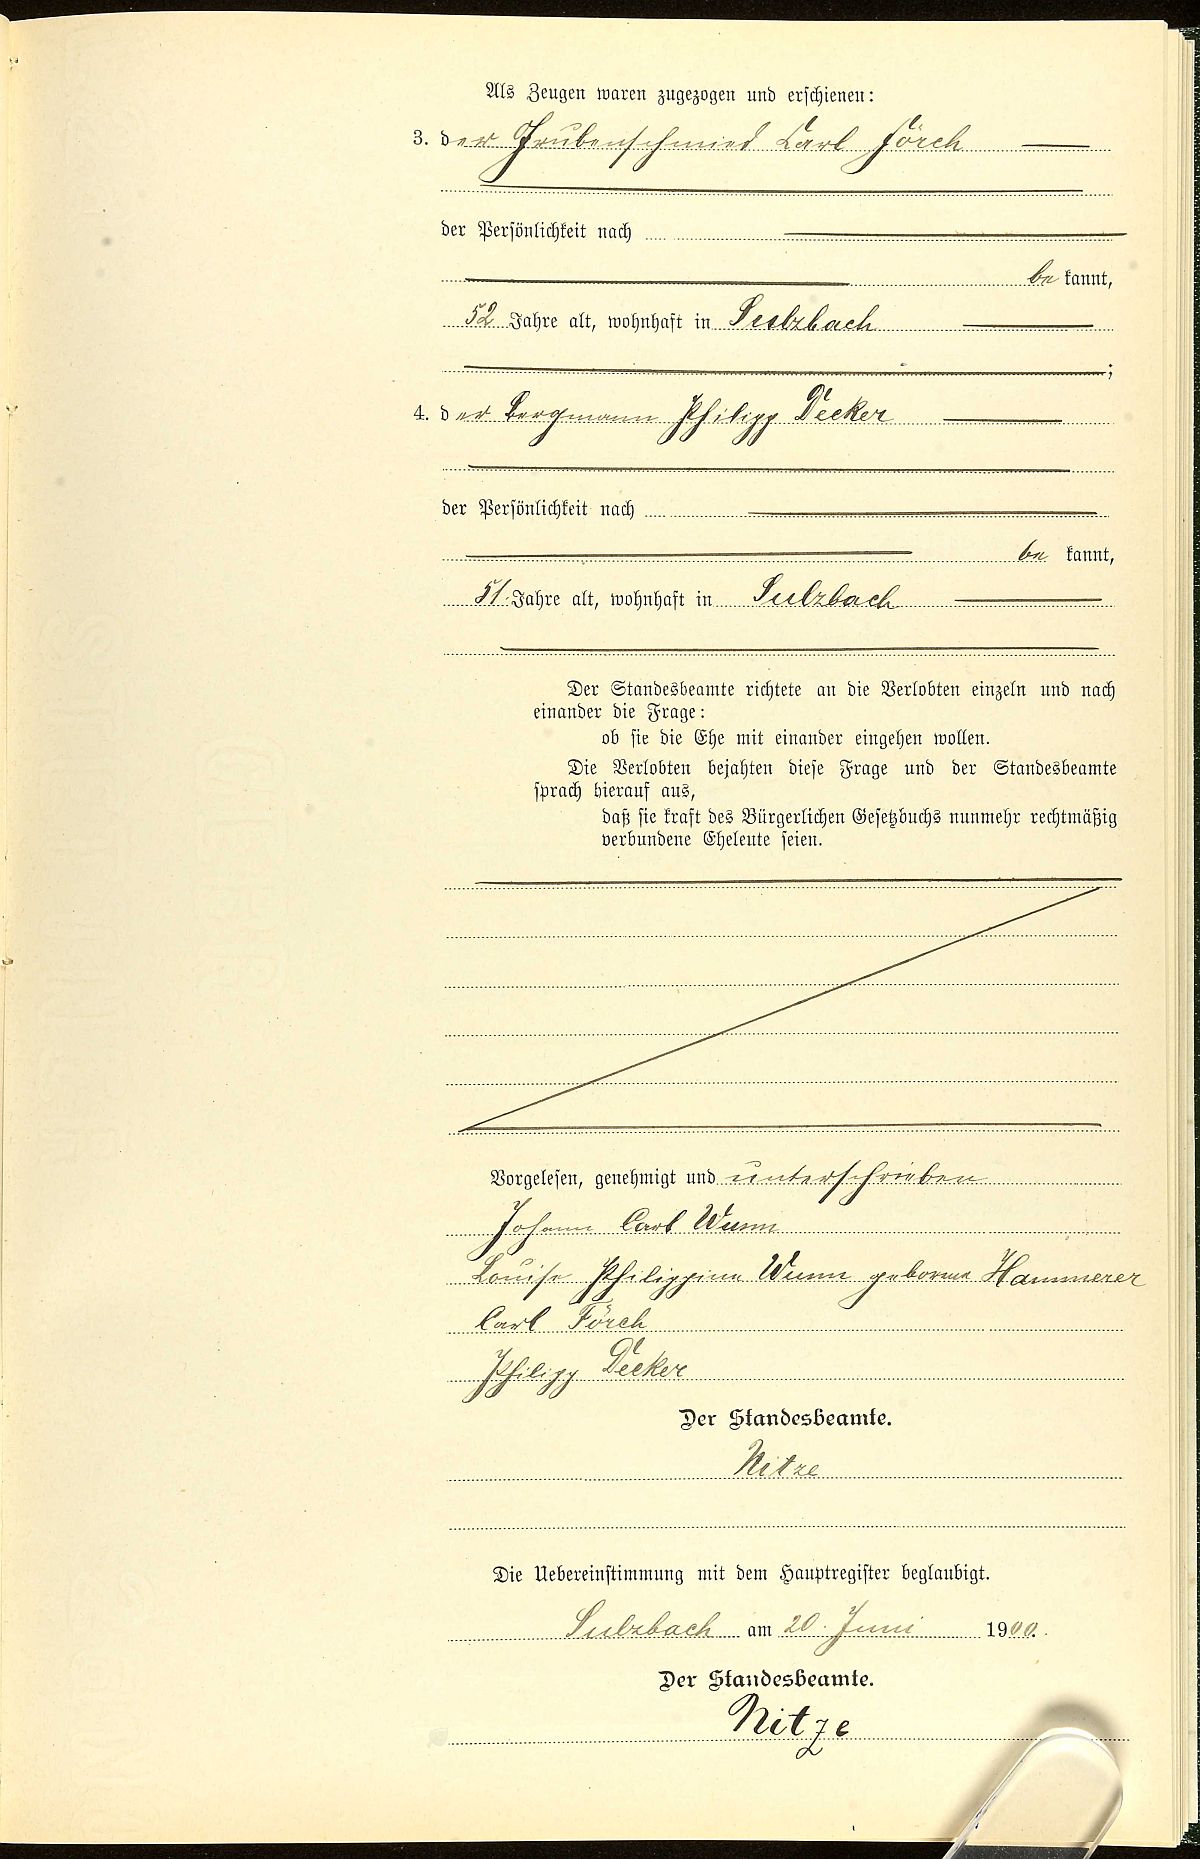 Als Zeugen waren zugezogen und erschienen:
3. der Grubenschmied Carl Förch
der Persönlichkeit nach
be kannt,
52 Jahre alt, wohnhaft in Sulzbach
;
4. der Bergmann Philipp Decker
der Persönlichkeit nach
be kannt,
51 Jahre alt, wohnhaft in Sulzbach
Der Standesbeamte richtete an die Verlobten einzeln und nach
einander die Frage:
ob sie die Ehe mit einander eingehen wollen.
Die Verlobten bejahten diese Frage und der Standesbeamte
sprach hierauf aus,
daß sie kraft des Bürgerlichen Gesetzbuchs nunmehr rechtmäßig
verbundene Eheleute seien.
Vorgelesen, genehmigt und unterschrieben
Johann Carl Wunn
Louise Philippine Wunn geborene Hammerer
Carl Förch
Philipp Decker
Der Standesbeamte.
Nitze
Die Uebereinstimmung mit dem Hauptregister beglaubigt.
Sulzbach am 20. Juni 1900.
Der Standesbeamte.
Nitze